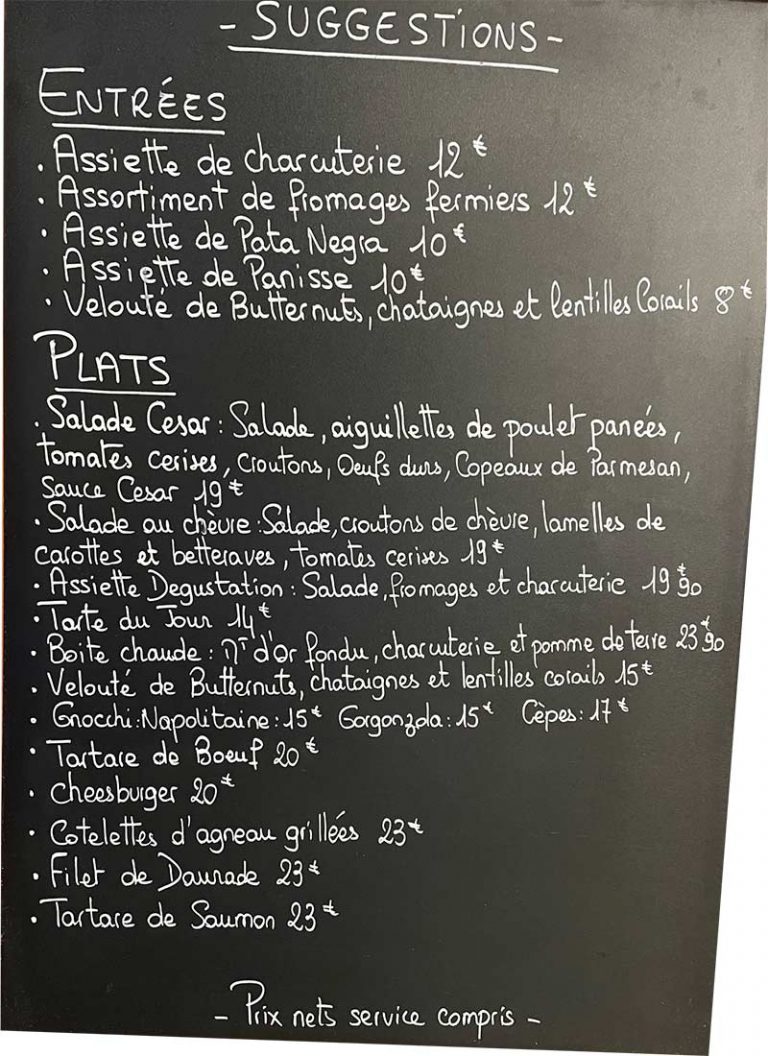 - SUGGESTIONS -
ENTRÉES
. Assiette de charcuterie 12€
. Assortiment de fromages fermiers 12€
. Assiette de Pata Negra 10€
. Assiette de Panisse 10€
. Velouté de Butternuts, chataignes et lentilles Corails 8€
PLATS
. Salade Cesar : Salade, aiguillettes de poulet panées,
tomates cerises, croutons, Oeufs durs, Copeaux de Parmesan,
Sauce Cesar 19€
. Salade au chèvre : Salade, croutons de chèvre, lamelles de
carottes et betteraves, tomates cerises 19€
. Assiette Degustation : Salade, fromages et charcuterie 19€90
. Tarte du Jour 14€
. Boite chaude : d'or fondu, charcuterie et pomme de terre 23€90
. Velouté de Butternuts, chataignes et lentilles corails 15€
. Gnocchi : Napolitaine : 15€ Gorgonzola : 15€ Cèpes : 17€
. Tartare de Boeuf 20€
. Cheesburger 20€
. Cotelettes d'agneau grillées 23€
. Filet de Daurade 23€
. Tartare de Saumon 23€
- Prix nets service compris -